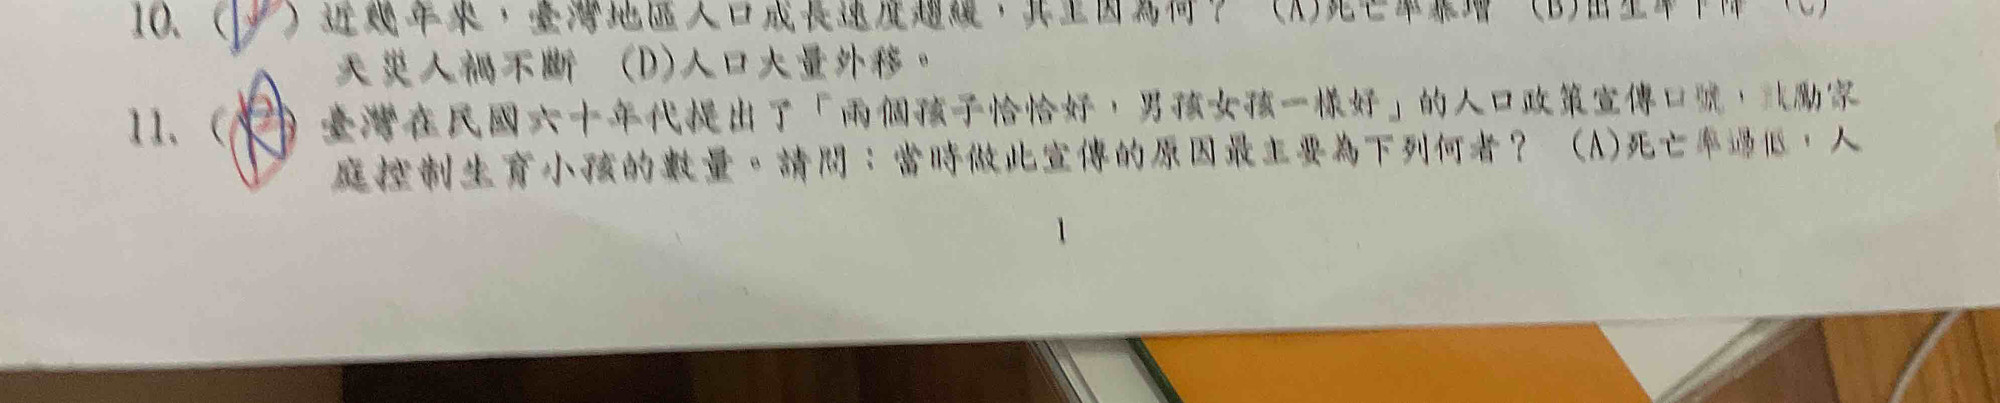 10、( ) 近幾年來，臺灣地區人口成長速度趨緩，其主因為何？ (A)死亡率暴增 (B)出生率下降 (C)
天災人禍不斷 (D)人口大量外移。
11、( ) 臺灣在民國六十年代提出了「兩個孩子恰恰好，男孩女孩一樣好」的人口政策宣傳口號，鼓勵家
庭控制生育小孩的數量。請問：當時做此宣傳的原因最主要為下列何者？ (A)死亡率過低，人
1